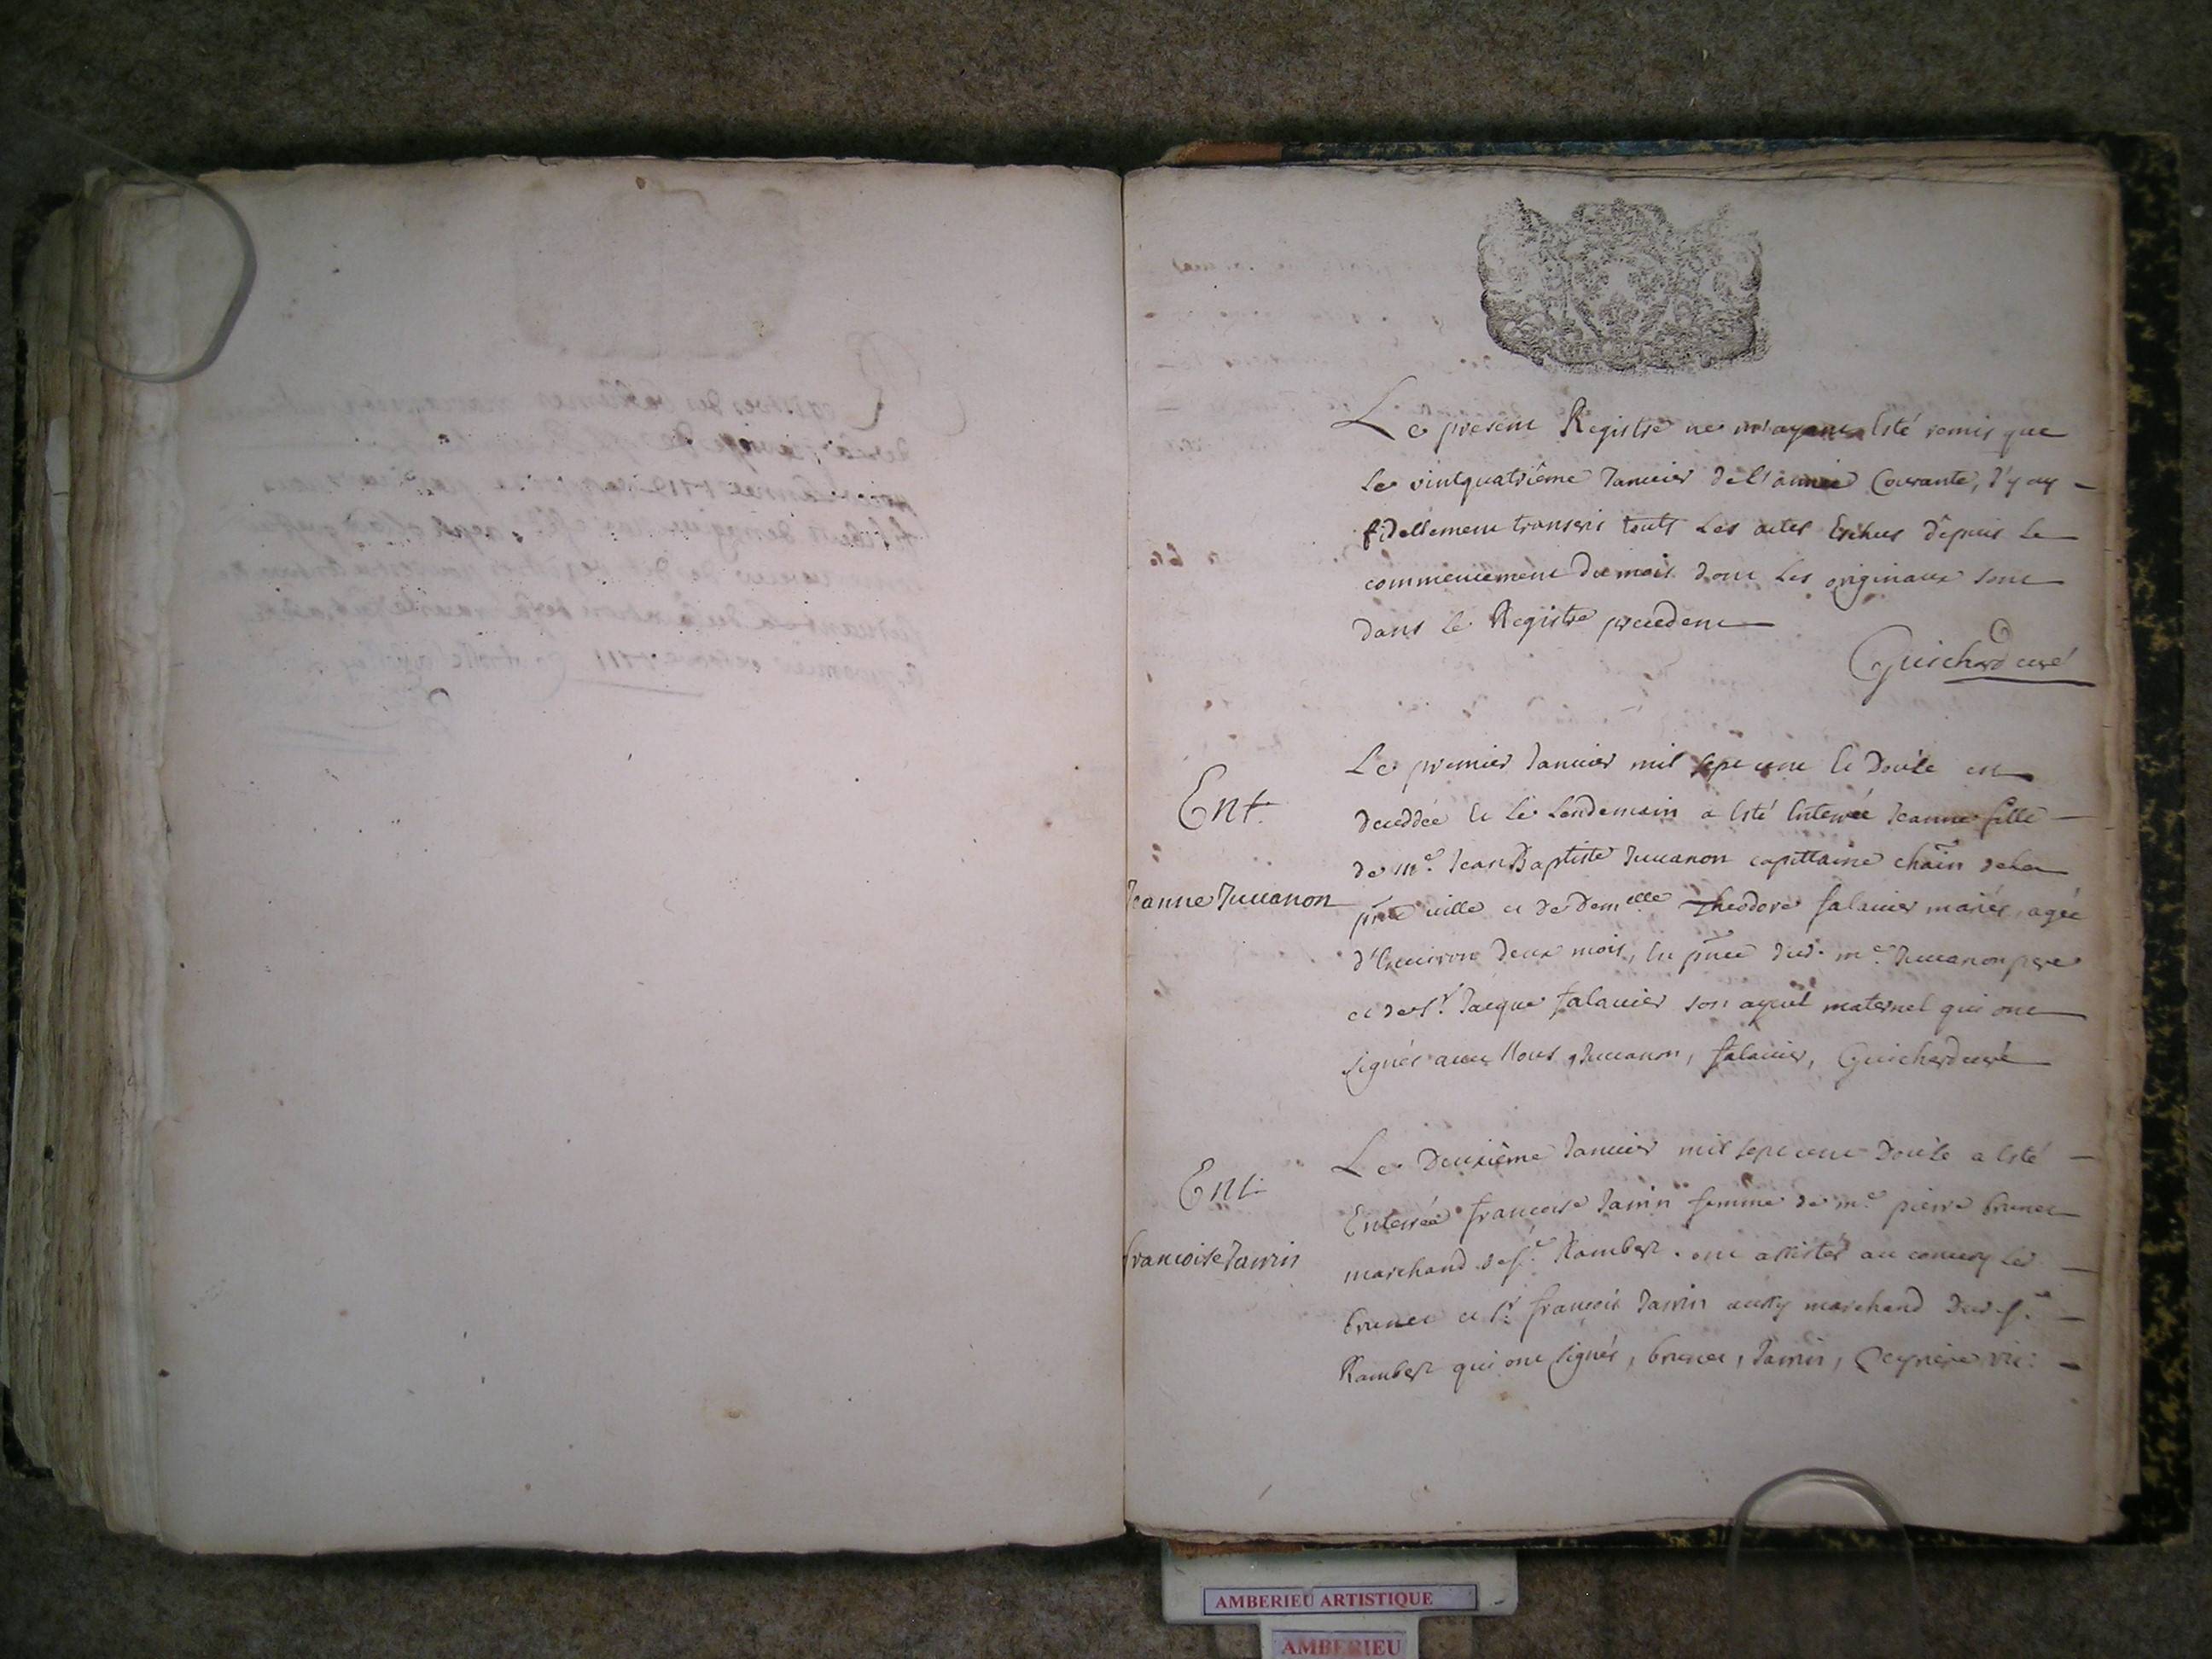 Le present Registre ne m'ayant Esté remis que
le vintquatrième Janvier de l'année Courante, J'y ay
fidellement transcris touts Les actes Eschus depuis Le
commencement du mois dont Les originaux sont
dans le Registre precedent
Guichard curé
Le premier Janvier mil sept cent et Douze est
Ent.
deceddée et Le Lendemain a Esté Enterrée Jeanne fille
de me. Jean Baptiste Juvanon capittaine chain de la
Jeanne Juvanon
pnte ville et de Demelle Theodore falavier mariés, agée
d'Environ deux mois, En pnce dud. me. Juvanon pere
et de Sr. Jacque falavier son ayeul maternel qui ont
signés avec Nous, Juvanon, falavier, Guichard curé
Le Deuxième Janvier mil sept cent Douze a Esté
Ent.
Enterrée francoise Janin femme de me. pierre brunet
francoise Janin
marchand de St. Rambert. ont assistés au convoy led.
brunet et Sr. françois Janin aussy marchand dud St.
Rambert qui ont signés, brunet, Janin, vic.
AMBERIEU ARTISTIQUE
AMBERIEU